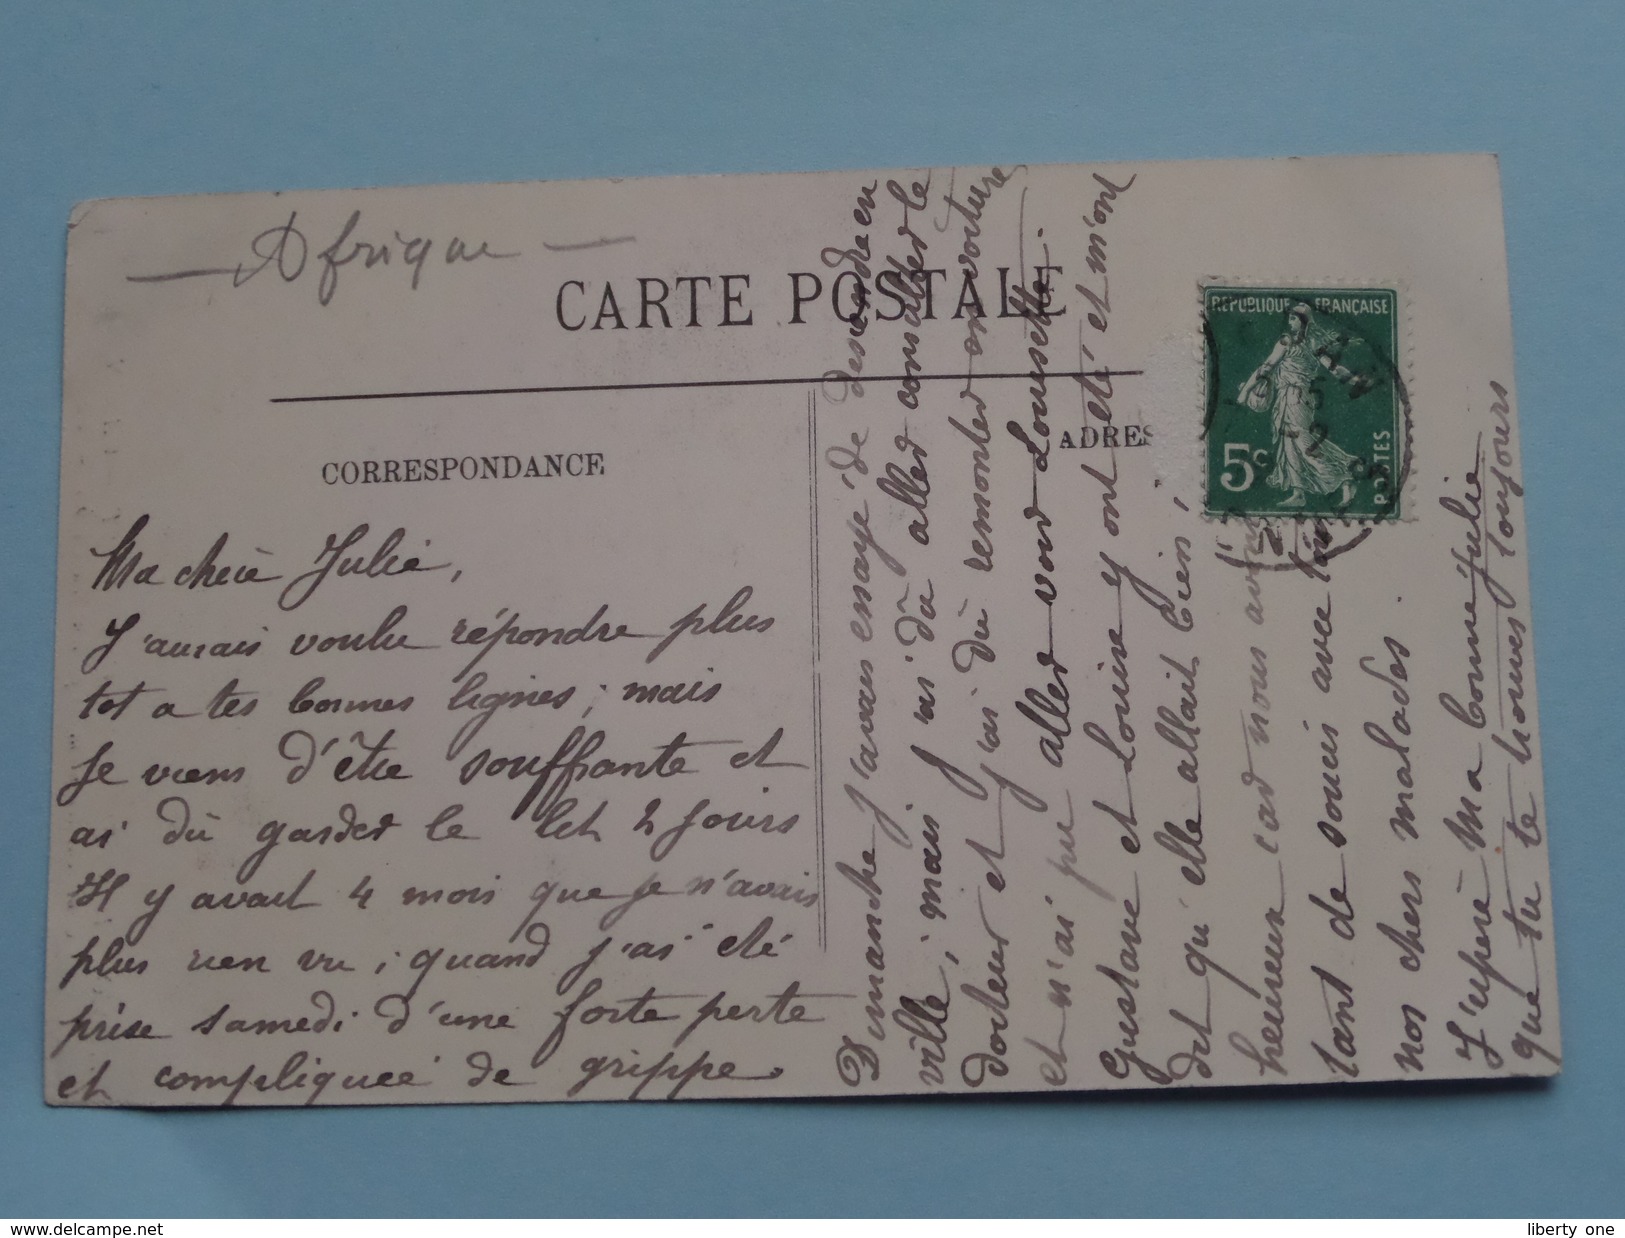 Afrique
CARTE POSTALE
CORRESPONDANCE
ADRES
Ma chère Julie,
J'aurais voulu répondre plus
tot a tes bonnes lignes ; mais
je viens d'être souffrante et
ai dû garder le lit 2 jours
Il y avait 4 mois que je n'avais
plus rien vu ; quand j'ai été
prise samedi d'une forte perte
et compliquée de grippe.
Dimanche j'avais essayé de descendre en
ville, mais j'ai dû aller consulter le
docteur et j'ai dû remonter en voiture
et n'ai pu aller voir Lousette.
Gustave et Louise y ont été et m'ont
dit qu'elle allait bien,
heureux car nous avons
tant de soucis avec tous
nos chers malades.
J'espère Ma bonne Julie
que tu te trouves toujours
REPUBLIQUE FRANÇAISE
5c
POSTES
liberty one
http://www.delcampe.net